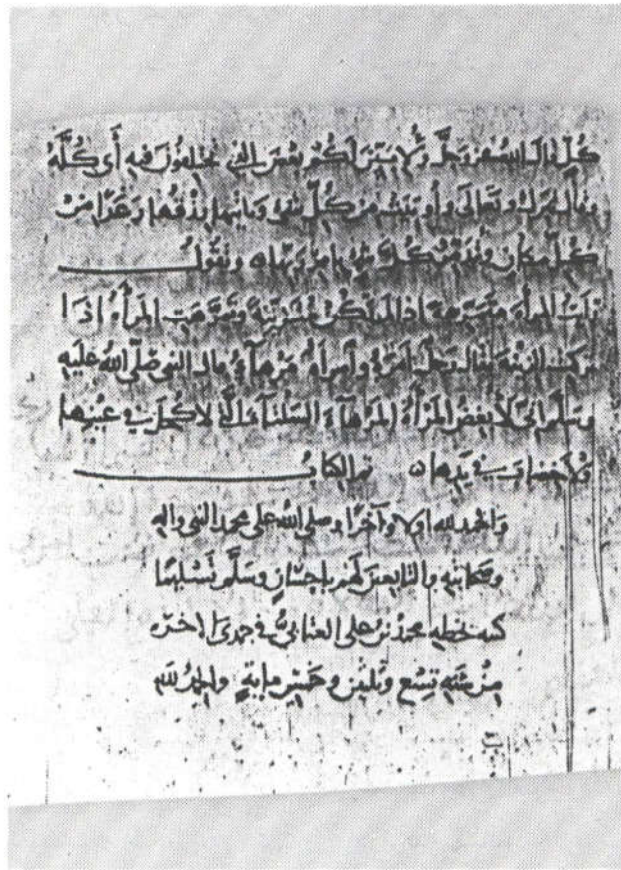 كُلّ قال الله عز وجل وَلِأُبَيِّنَ لَكُم بَعْضَ الذي تختلفون فيه أَي كُلَّهُ
وقال تبارك وتعالى وأوتيت من كلّ شيء ويأتيها رزقها رَغَدًا مِنْ
كُلّ مكان وتدمّر كلّ شيء بأمر ربها ۝ ويقول
امرأة إذا لم تكن متزينة المرأة إذا
تركت الزينة يقال رجل أمْرَهُ وامرأة مَرْهآءُ قال النبي صَلّى الله عليه
وسلم إنّي لأبغضُ المَرْأةَ المَرْهآءَ السَّلْتآءَ لا كُحْلَ في عينيها
ولا خضاب في يديها ۝ تم الكتابُ
والحمد لله أولا وآخرًا وصلى الله على محمد النبي وآله
وصحابته والتابعين لَهُمْ بإحسَانٍ وسَلَّمَ تَسْليمًا
كتبه بخطه محمد بن على العتابيُّ في جمدى الآخرة
مِنْ سَنَةِ تِسْع وثلثين وخمس مايةٍ والحمدُ لله